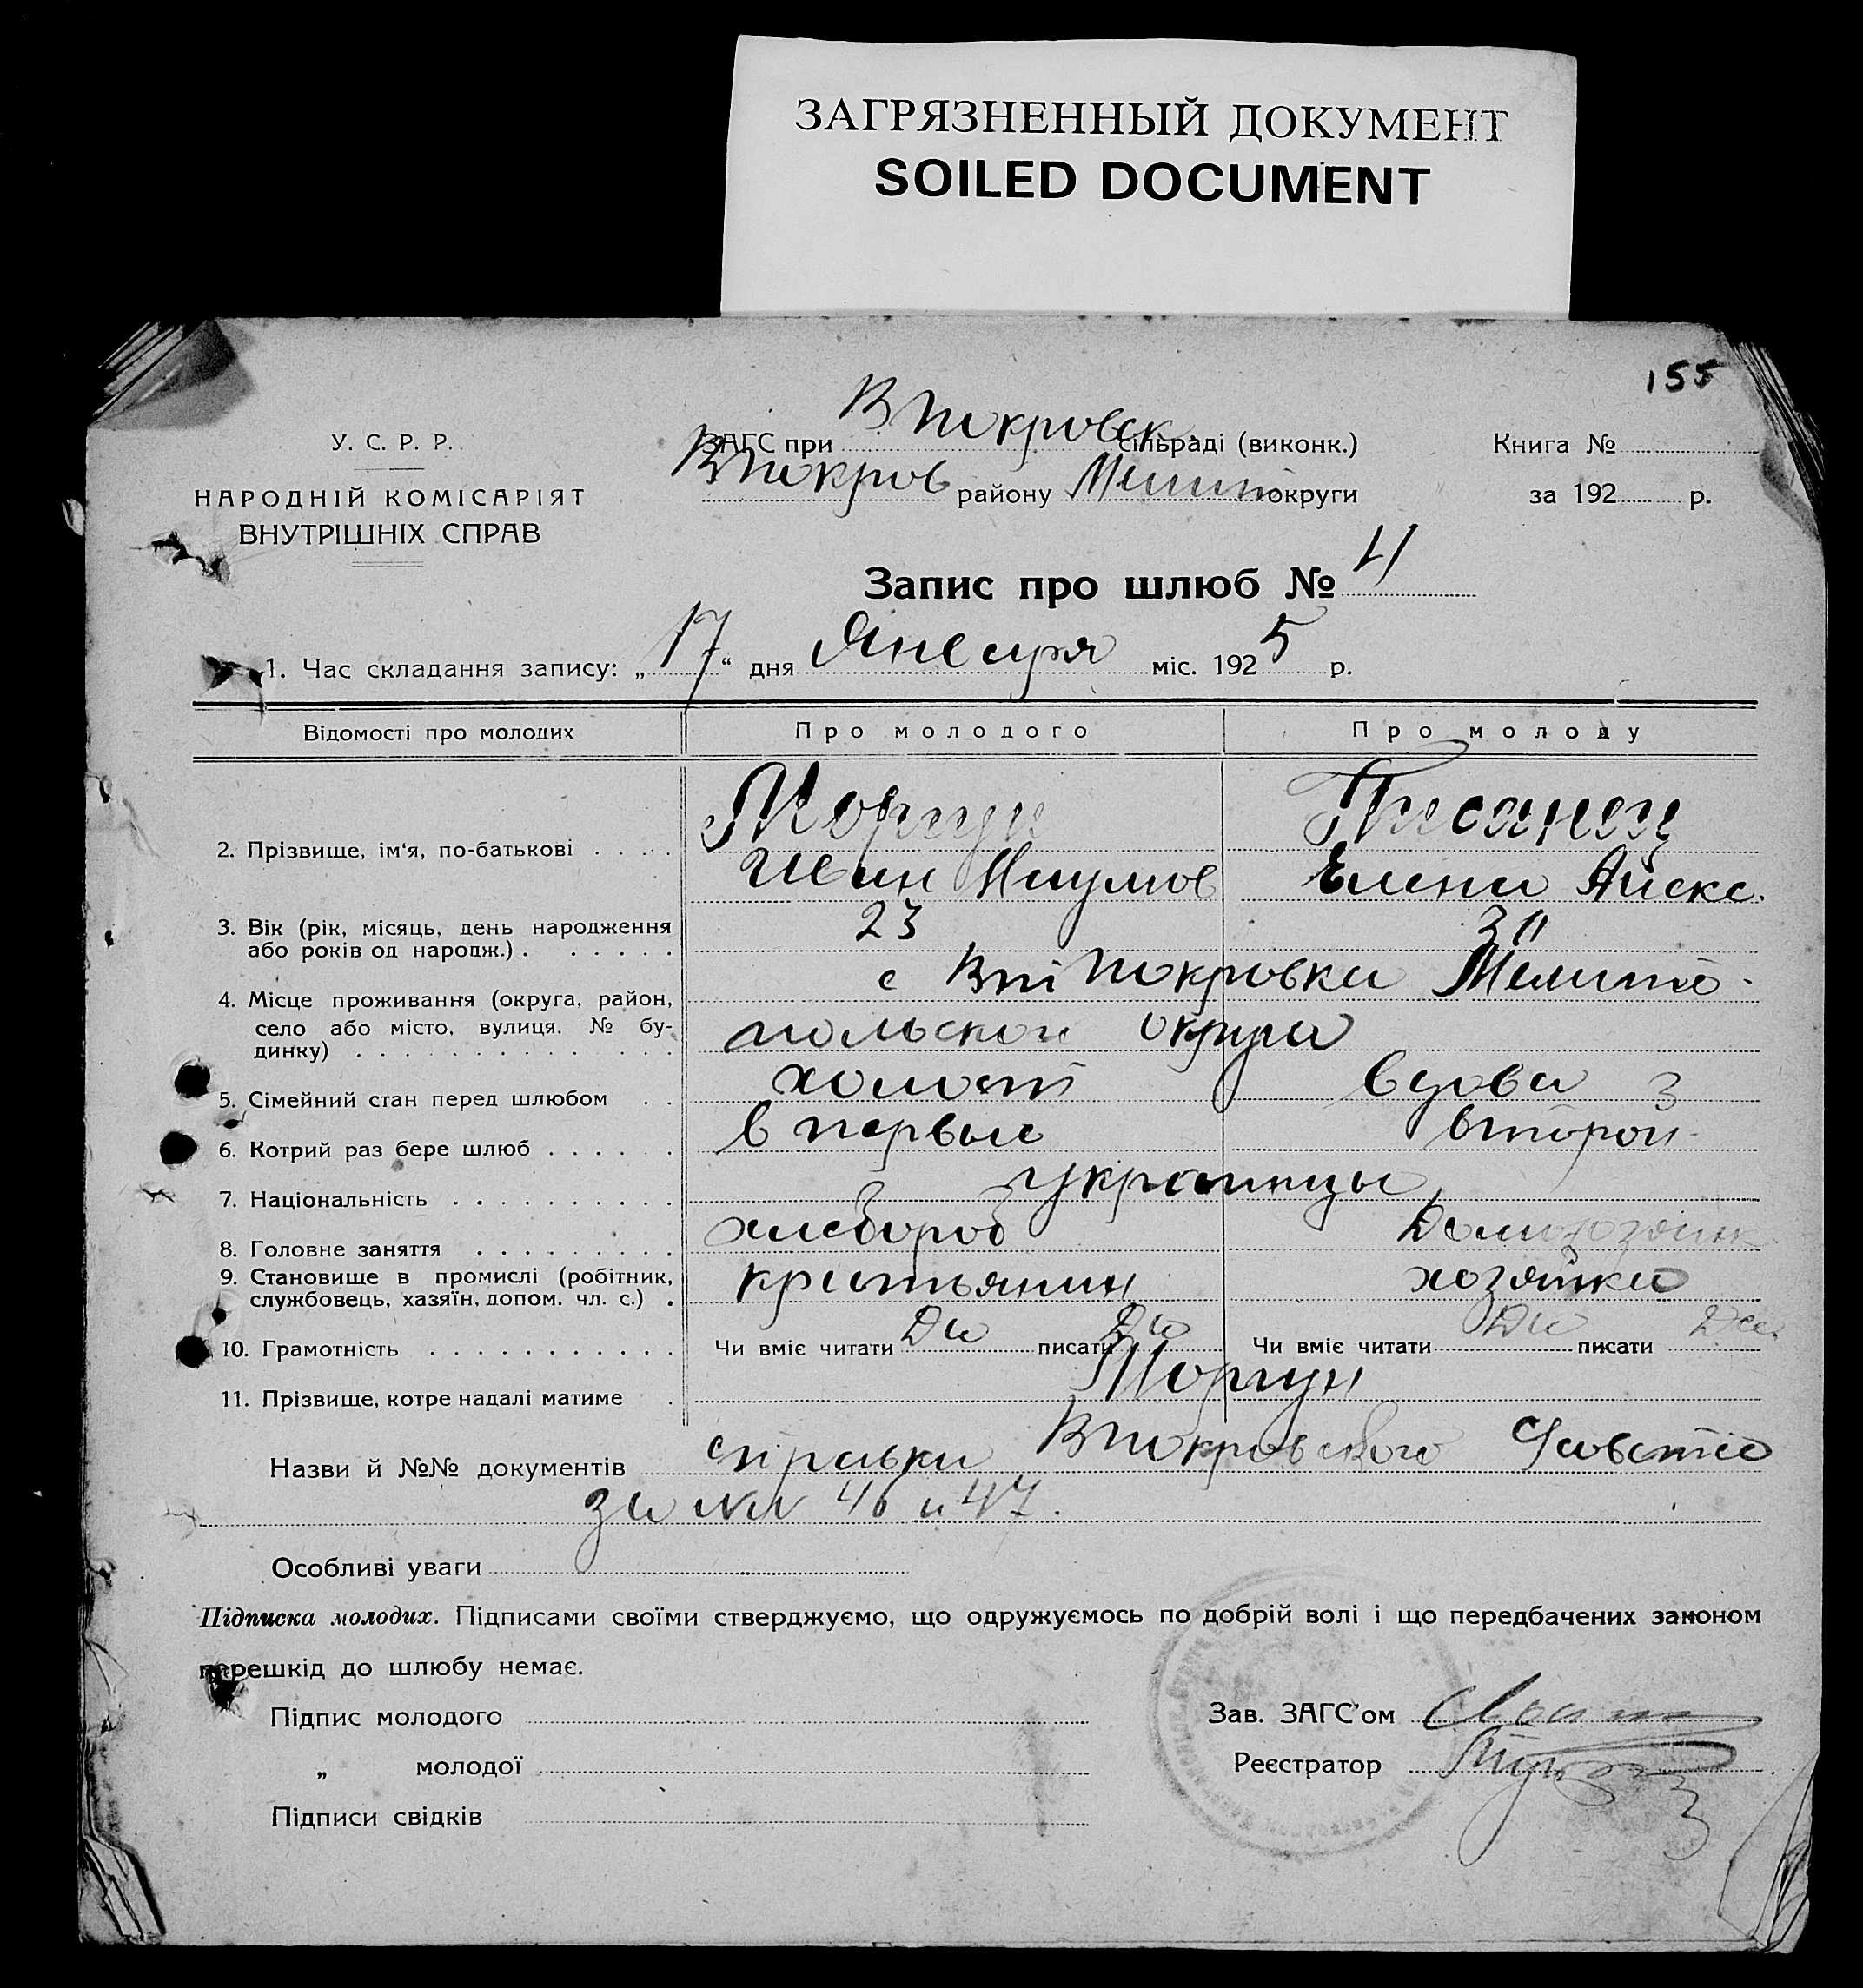 ЗАГРЯЗНЕННЫЙ ДОКУМЕНТ
SOILED DOCUMENT
155
У. С. Р. Р.
НАРОДНІЙ КОМІСАРІЯТ
ВНУТРІШНІХ СПРАВ
ЗАГС при В Покровск. сільраді (виконк.)
В Покров району Мелитоп округи
Книга №
за 192 р.
Запис про шлюб № 4
1. Час складання запису: „17“ дня Января міс. 1925 р.
Відомості про молодих Про молодого Про молоду
Моргун Писанец
2. Прізвище, ім'я, по-батькові
Иван Наумов Елена Алекс.
3. Вік (рік, місяць, день народження 23
або років од народж.)
с Вт Покровка Мелито-
4. Місце проживання (округа, район,
село або місто, вулиця. № бу- польской округа
динку)
5. Сімейний стан перед шлюбом холост вдова
6. Котрий раз бере шлюб в первые второй
7. Національність украинцы
8. Головне заняття хлебороб Домохозяйк
9. Становище в промислі (робітник, крестьянин хозяйка
службовець, хазяїн, допом. чл. с.)
10. Грамотність Чи вміє читати Да писати Да Чи вміє читати Да писати Да
11. Прізвище, котре надалі матиме Моргун
Назви й №№ документів справки В Покровского
за №№ 46 и 47.
Особливі уваги
Підписка молодих. Підписами своїми стверджуємо, що одружуємось по добрій волі і що передбачених законом
перешкід до шлюбу немає.
Підпис молодого Зав. ЗАГС'ом
„ молодої Реєстратор
Підписи свідків